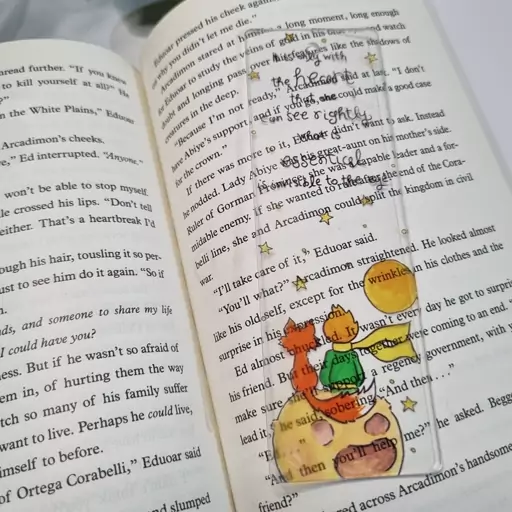 aread further. "If you knew
to kill yourself at all?" The
n the White Plains," Eduoar
Arcadimon's cheeks.
e," Ed interrupted. "Anyone."
won't be able to stop myself.
le crossed his lips. "Don't tell
either. That's a heartbreak I'd
ough his hair, tousling it so per-
ust to see him do it again. "So if
n.
nds, and someone to share my life
I could have you?
ess. But if he wasn't so afraid of
em in, of hurting them the way
tch so many of his family suffer
want to live. Perhaps he could live,
imself to before.
of Ortega Corabelli," Eduoar said
nd slumped
Eduoar pressed his cheek again
why you didn't let me die."
Arcadimon stared at him for a long moment, long enough
for Eduoar to study the veins of gold in his
doubt and longing pass over his features like the shadows of
creatures in the deep.
"Because I'm not ready," Arcadimon said at last. "I don't
have Abiye's support, and if you go, she could make a good case
for the crown."
If there was more to it, Eduoar didn't want to ask. Instead
he nodded. Lady Abiye was his great-aunt on his mother's side.
Ruler of Gorman Province, she was a capable leader and a for-
midable enemy. If she wanted to rule after the end of the Cora-
belli line, she and Arcadimon could split the kingdom in civil
war.
"I'll take care of it," Eduoar said.
"You'll what?" Arcadimon straightened. He looked almost
like his old self, except for the wrinkles in his clothes and the
surprise in his expression.
Ed almost chuckled. It wasn't every day he got to surpris
his friend. But their days together were coming to an end. "
make sure a regency government, with y
lead it," he said, sobering. "And then . . ."
"Ed . . ."
"And then you'll help me?" he asked. Begge
friend?"
ed across Arcadimon's handsome
only with
the heart
that one
can see rightly
what is
essential
is invisible to the eye